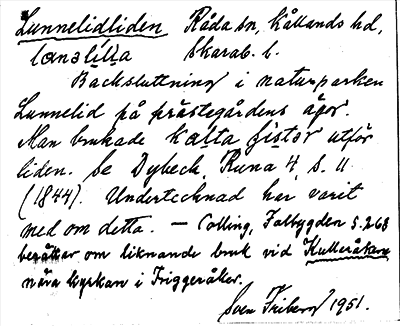 Lunnelidliden Råda sn, Kållands hd,
Skarab. l.
Backsluttning i naturparken
Lunnelid på prästegårdens ägor.
Man brukade kalta fistor utför
liden. Se Dybeck, Runa 4, s. 11
(1844). Undertecknad har varit
med om detta. — Colling, Falbygden s. 268
berättar om liknande bruk vid Kulleråkern
nära kyrkan i Friggeråker.
Sven Friberg 1951.